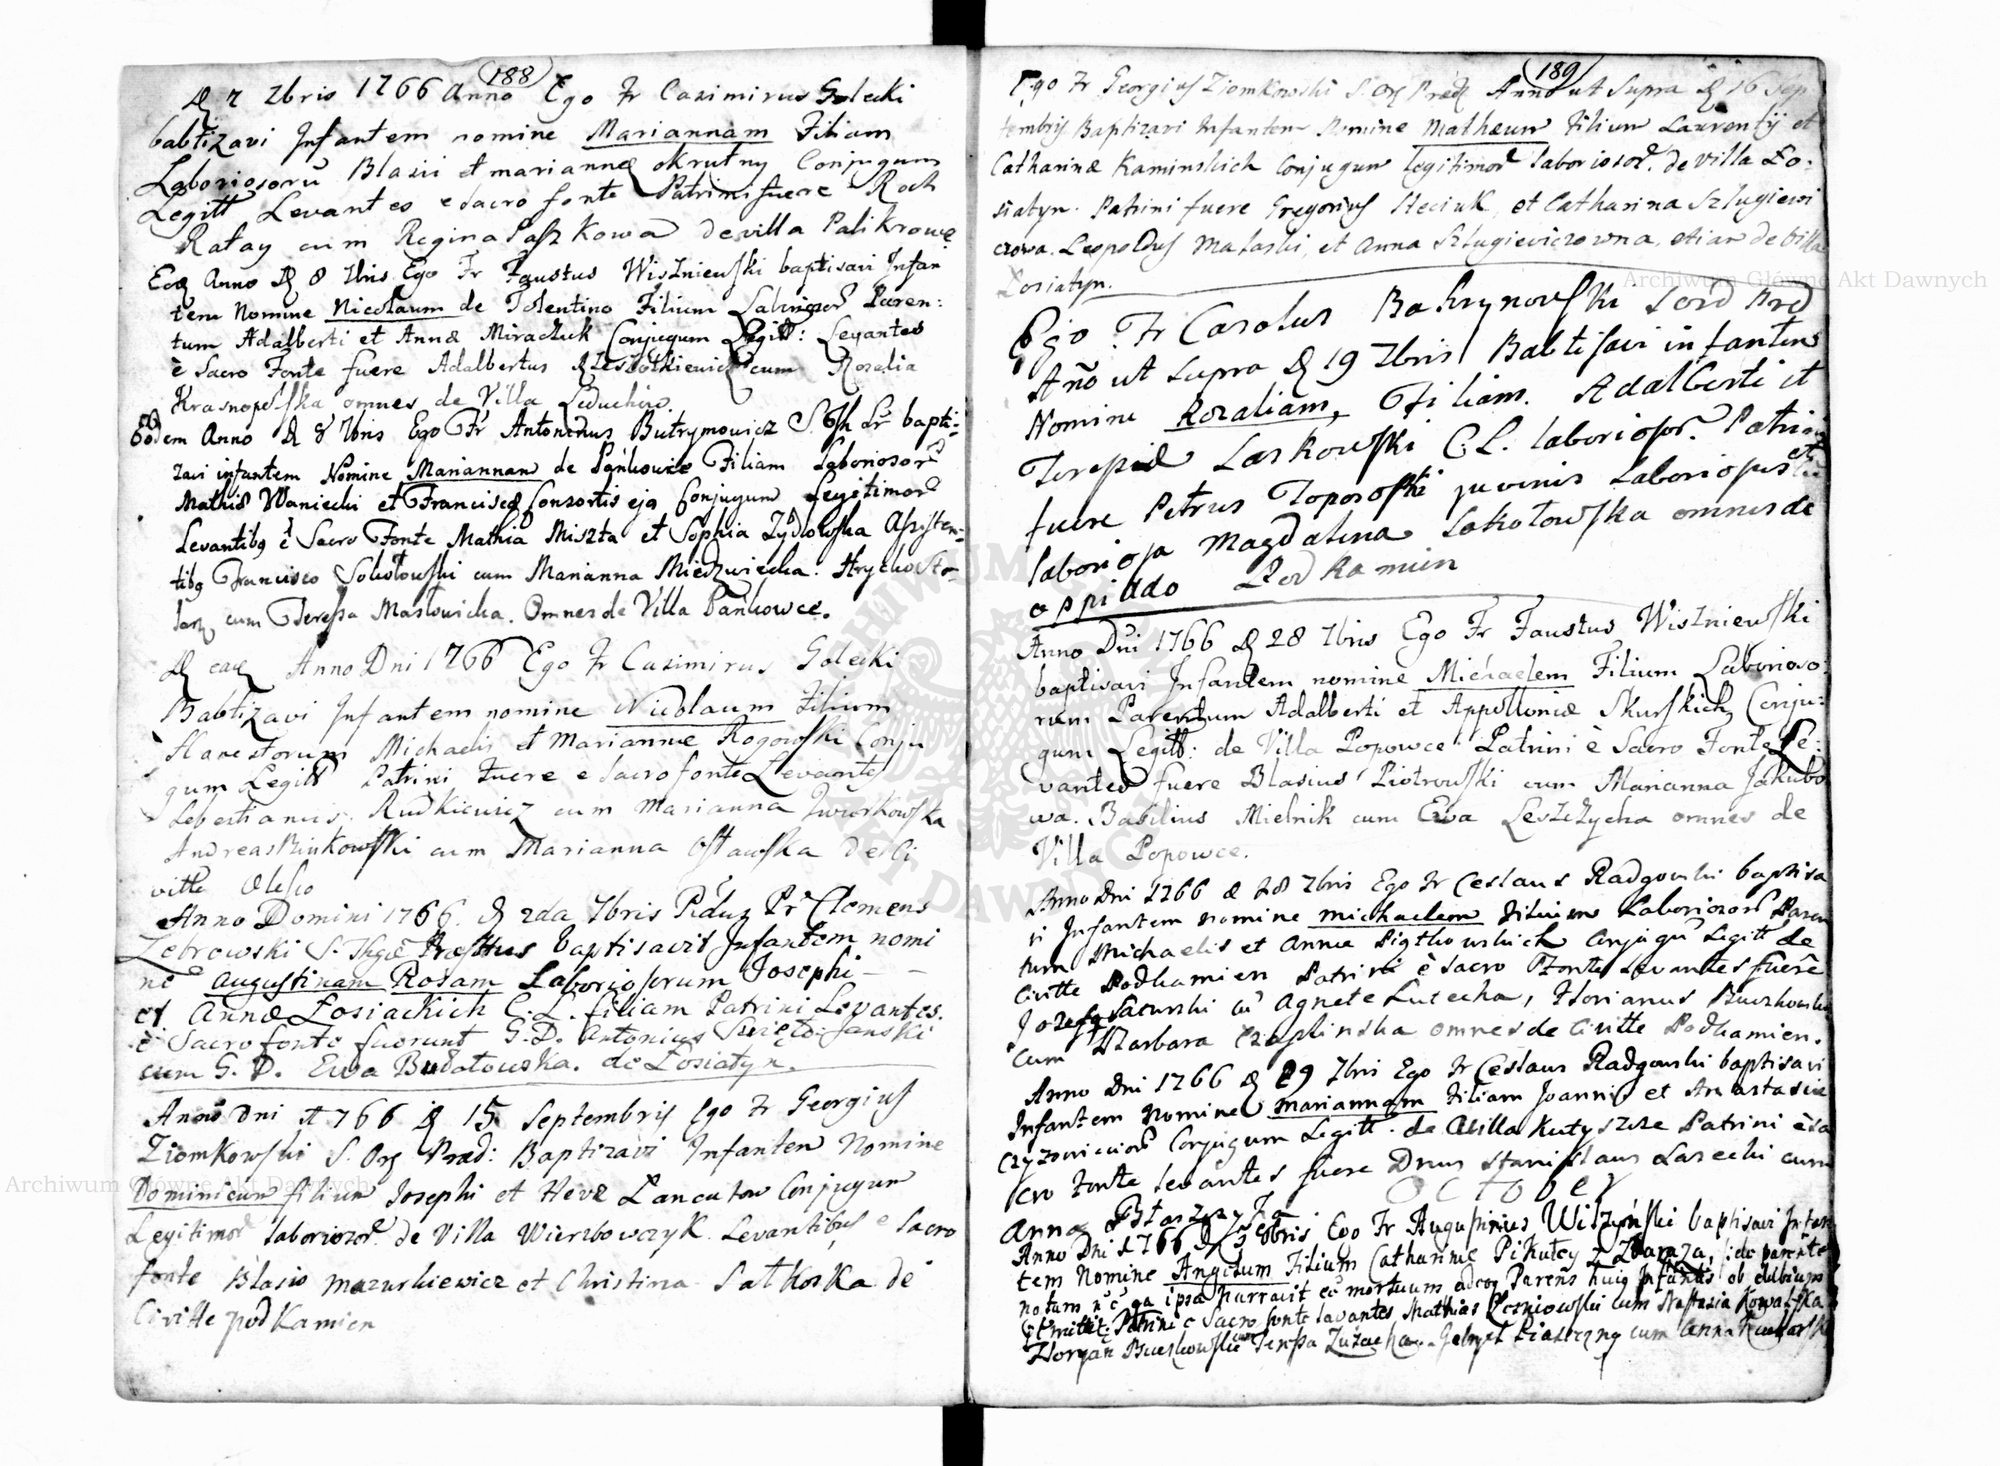 188
D 7 7bris 1766 Anno Ego Fr Casimirus Golecki
babtizavi Infantem nomine Mariannam Filiam
Laboriosorū Blasii et mariannæ okrutny Conjugum
Legitt Levantes e sacro fonte Patrini fuere Roch
Rataÿ cum Regina Paszkowa de villa Palikrowę
Eoq Anno D 8 7bris Ego Fr Faustus Wiszniewski baptisavi Infan
tem Nomine Nicolaum de Tolentino Filium Laborosor Paren:
tum Adalberti et Annæ Miraczuk Conjugum Legitt: Levantes
è Sacro Fonte fuere Adalbertus cum Rozalia
Krasnopolska omnes de Villa Leduchow.
Eodem Anno D 8 7bris Ego Fr Antoninus Butrymowicz S. Th Lr bapti-
zavi infantem Nomine Mariannam de Pańkowce Filiam Laboriosor
Mathiæ Waniecki et Franciscæ Consortis ejq Conjugum Legitimor
Levantibq è Sacro Fonte Mathia Miszta et Sophia Assisten-
tibq Francisco Sokołowski cum Marianna Miedzwiecka. Hrycko Sto-
larz cum Teressa Masłowicka. Omnes de Villa Pańkowce.
D eaq Anno Dni 1766 Ego Fr Casimirus Golecki
Babtizavi Infantem nomine Nicolaum Filium
Honestorum Michaelis et Mariannæ Rogowski Conju
gum Legitt Patrini Fuere e sacro fonte Levantes
Sebestianus Rudkiewicz cum Marianna
Andreas Binkowski cum Marianna Ostawska de Ci
vitte Olesco
Anno Domini 1766. D 2da 7bris Pr Clemens
Zebrowski S. Thgæ baptisavit Infantem nomi
ne Augustinam Rosam Laboriosorum Josephi
et Annæ Łosiackich C. L. filiam Patrini Levantes.
è Sacro fonte fuerunt G. D. Antonius
cum G. D. Ewa Budatowska. de Łosiatyn.
Anno Dni 1766 D 15 Septembris Ego Fr Georgius
Ziomkowski S. Orq Præd: Baptizavi Infantem Nomine
Dominicum filium Josephi et Hevæ Łancutow Conjugum
Legitimor laboriozor de Villa Wierzbowczyk. Levantibus e Sacro
fonte Blasio Mazurkiewicz et Christina Satkoska de
Civitte podKamien
189
Ego Fr Georgius Ziomkowski S. Orq Præd Anno ut Supra D 16 Sep
tembris Baptizavi Infantem Nomine Mathæum Filium Laurentij et
Catharinæ Kaminskich Conjugum legitimor laboriosor. de Villa Ło-
siatyn. Patrini fuere Gregorius Steciuk, et Catharina Szługiewi
czowa. Leopoldus Mataski, et Anna Szługiewiczowna, etiam de Villa
Łosiatyn.
Ego Fr Carolus Bakrynowski S Ord Prd
Año ut supra D 19 7bris Babtisavi infantem
Nomine Rozaliam, Filiam. Adalberti et
Teresiæ Laskowski C. L. laboriosor. Patrini
fuere Petrus Toporoski juvenis Laboriosus et
laboriosa Magdalena Sokołowska omnes de
oppiddo Podkamien
Anno Dni 1766 D 28 7bris Ego Fr Faustus Wiszniewski
baptisavi Infantem nomine Michaelem Filium Laborioso:
rum Parentum Adalberti et Appolloniæ Skurskich Conju:
gum Legitt: de Villa Popowce Patrini è Sacro Fonte Le:
vantes fuere Blasius Piotrowski cum Marianna Jakubo
wa. Basilius Mielnik cum Ewa Leszczycha omnes de
Villa Popowce.
Anno Dni 1766 D 28 7bris Ego Fr Ceslaus Radgowski baptisa
vi Infantem nomine Michaelem Filium Laboriosor Paren
tum Michaelis et Annæ Conjugū Legitt de
Civitte Podkamien Patrini è sacro Fonte Levantes fuere
Jozefq Sacurski cū Agnete Lutecka, Florianus
cum Barbara Czaplinska omnes de Civitte Podkamien.
Anno Dni 1766 D 29 7bris Ego Fr Ceslaus Radgowski baptisavi
Infantem Nomine Mariannam Filiam Joannis et Anastasiæ
Conjugum Legitt. de Villa Kutyszcze Patrini è sa
cro Fonte levantes fuere Dnus Stanislaus Lasecki cum
Anna
October
Anno Dni 1766 D 3 8bris Ego Fr Augustinus Wilzyński baptisavi Infan
tem Nomine Angelum Filium Catharinæ Pikułey z Zbaraża, de parente
notum ipsa narravit eū mortuum adeoq Parens hujq Infantis ob dubium
Patrini e Sacro fonte levantes Mathias cum Nastazia Kowalska
Floryan cum Teressa cum Anna
Archiwum Główne Akt Dawnych
Archiwum Główne Akt Dawnych
ARCHIWUM GŁÓWNE AKT DAWNYCH